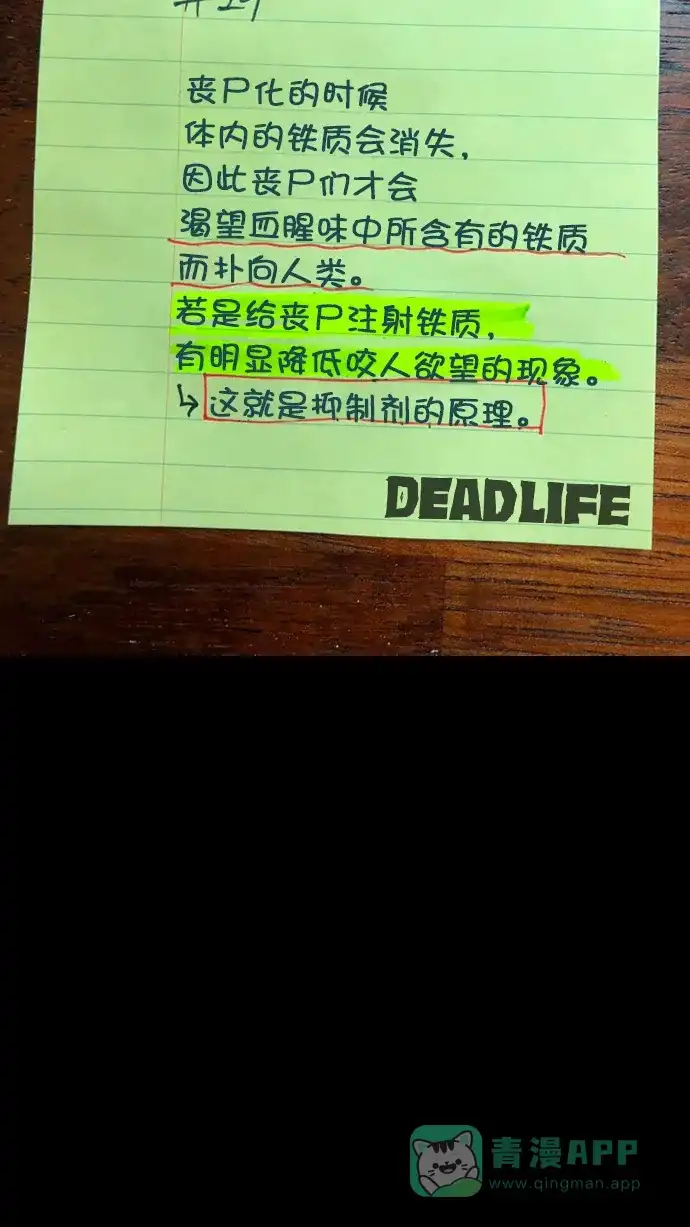 丧尸化的时候
体内的铁质会消失，
因此丧尸们才会
渴望血腥味中所含有的铁质
而扑向人类。
若是给丧尸注射铁质，
有明显降低咬人欲望的现象。
↳这就是抑制剂的原理。
DEADLIFE
青漫APP
www.qingman.app